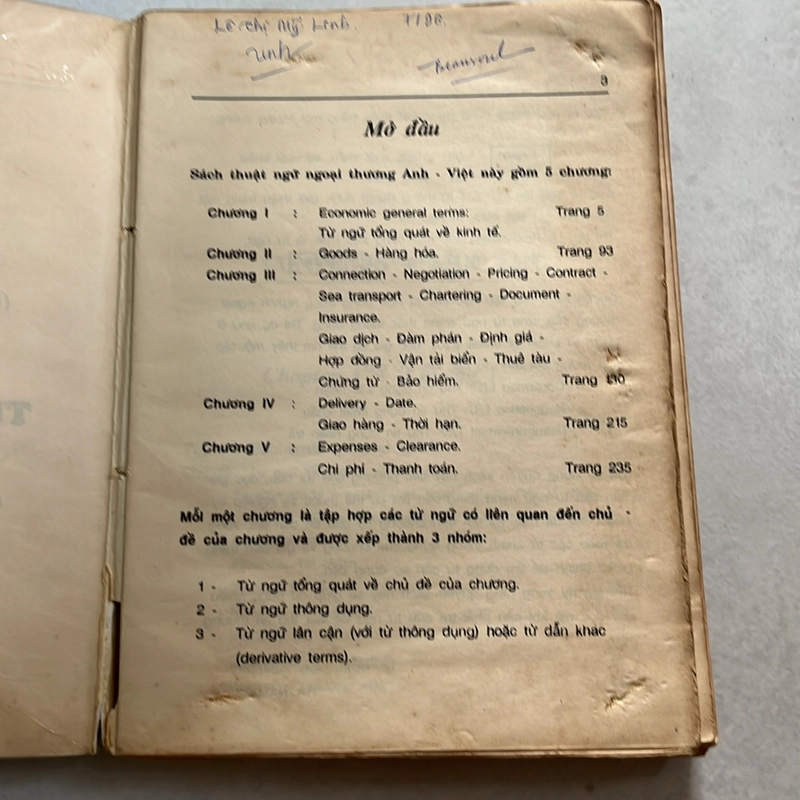 Lê Thị Mỹ Linh. 7/96.
3
Mở đầu
Sách thuật ngữ ngoại thương Anh - Việt này gồm 5 chương:
Chương I : Economic general terms: Trang 5
Từ ngữ tổng quát về kinh tế.
Chương II : Goods - Hàng hóa. Trang 93
Chương III : Connection - Negotiation - Pricing - Contract -
Sea transport - Chartering - Document -
Insurance.
Giao dịch - Đàm phán - Định giá -
Hợp đồng - Vận tải biển - Thuê tàu -
Chứng từ - Bảo hiểm. Trang
Chương IV : Delivery - Date.
Giao hàng - Thời hạn. Trang 215
Chương V : Expenses - Clearance.
Chi phí - Thanh toán. Trang 235
Mỗi một chương là tập hợp các từ ngữ có liên quan đến chủ -
đề của chương và được xếp thành 3 nhóm:
1 - Từ ngữ tổng quát về chủ đề của chương.
2 - Từ ngữ thông dụng.
3 - Từ ngữ lân cận (với từ thông dụng) hoặc từ dẫn khác
(derivative terms).